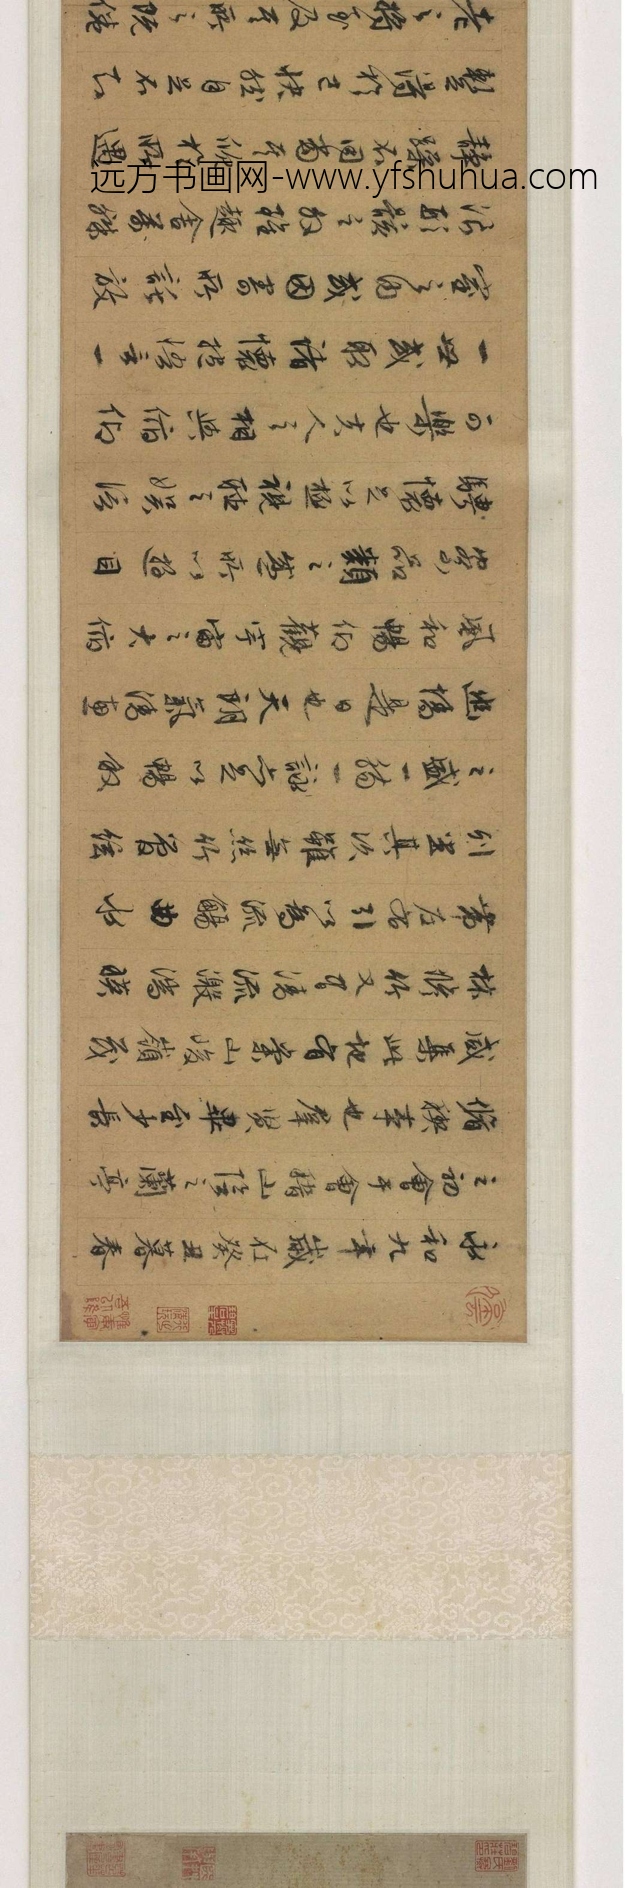 永和九年歲在癸丑暮春
之初會于會稽山陰之蘭亭
脩禊事也群賢畢至少長
咸集此地有崇山峻領茂
林脩竹又有清流激湍暎
帶左右引以為流觴曲水
列坐其次雖無絲竹管絃
之盛一觴一詠亦足以暢敘
幽情是日也天朗氣清惠
風和暢仰觀宇宙之大俯
察品類之盛所以遊目
騁懷足以極視聽之娛信
可樂也夫人之相與俯仰
一世或取諸懷抱悟言一
室之內或因寄所託放
浪形骸之外雖趣舍萬殊
靜躁不同當其欣於所遇
暫得於己快然自足不知
老之將至及其所之既倦
远方书画网-www.yfshuhua.com